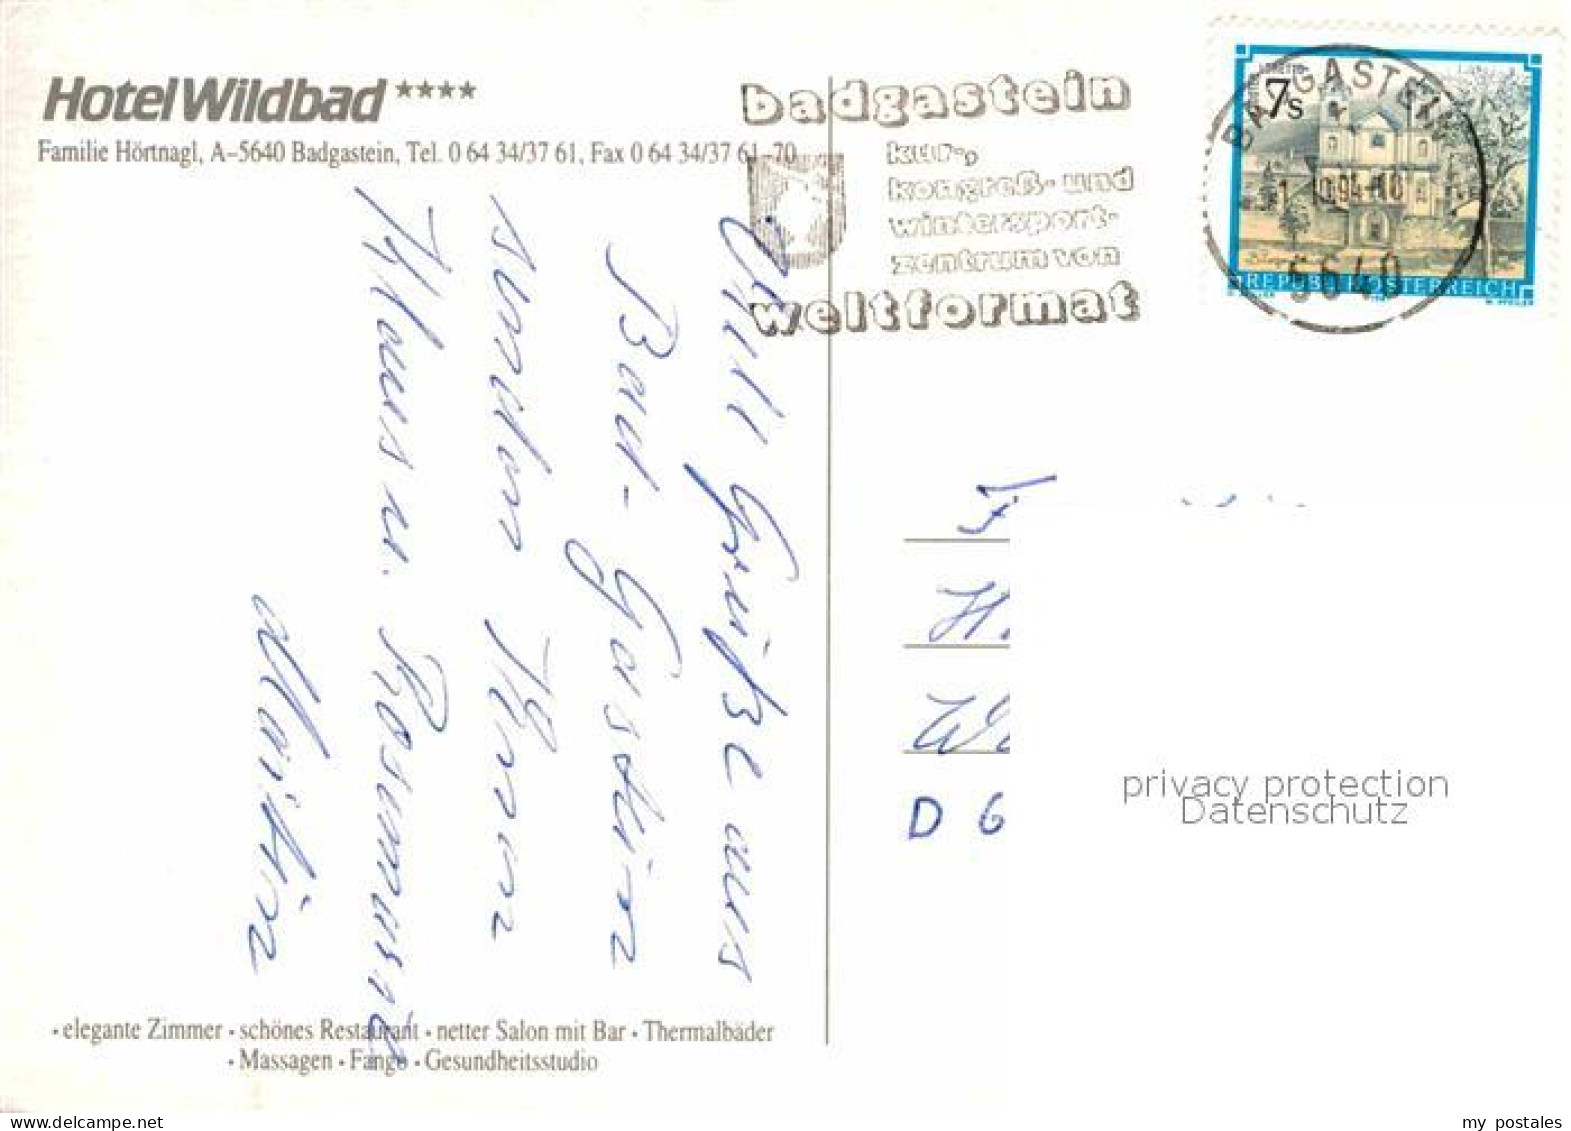 Hotel Wildbad ****
Familie Hörtnagl, A-5640 Badgastein, Tel. 0 64 34/37 61, Fax 0 64 34/37 61-70
badgastein
kur-,
kongreß- und
wintersport-
zentrum von
weltformat
BADGASTEIN
94-10
5640
7s
REPUBLIK ÖSTERREICH
Grüße aus
Bad-Gastein
senden Ihnen
Klaus u. Rosemarie
Martin
H.
D 6
privacy protection
Datenschutz
• elegante Zimmer • schönes Restaurant • netter Salon mit Bar • Thermalbäder
• Massagen • Fango • Gesundheitsstudio
my postales